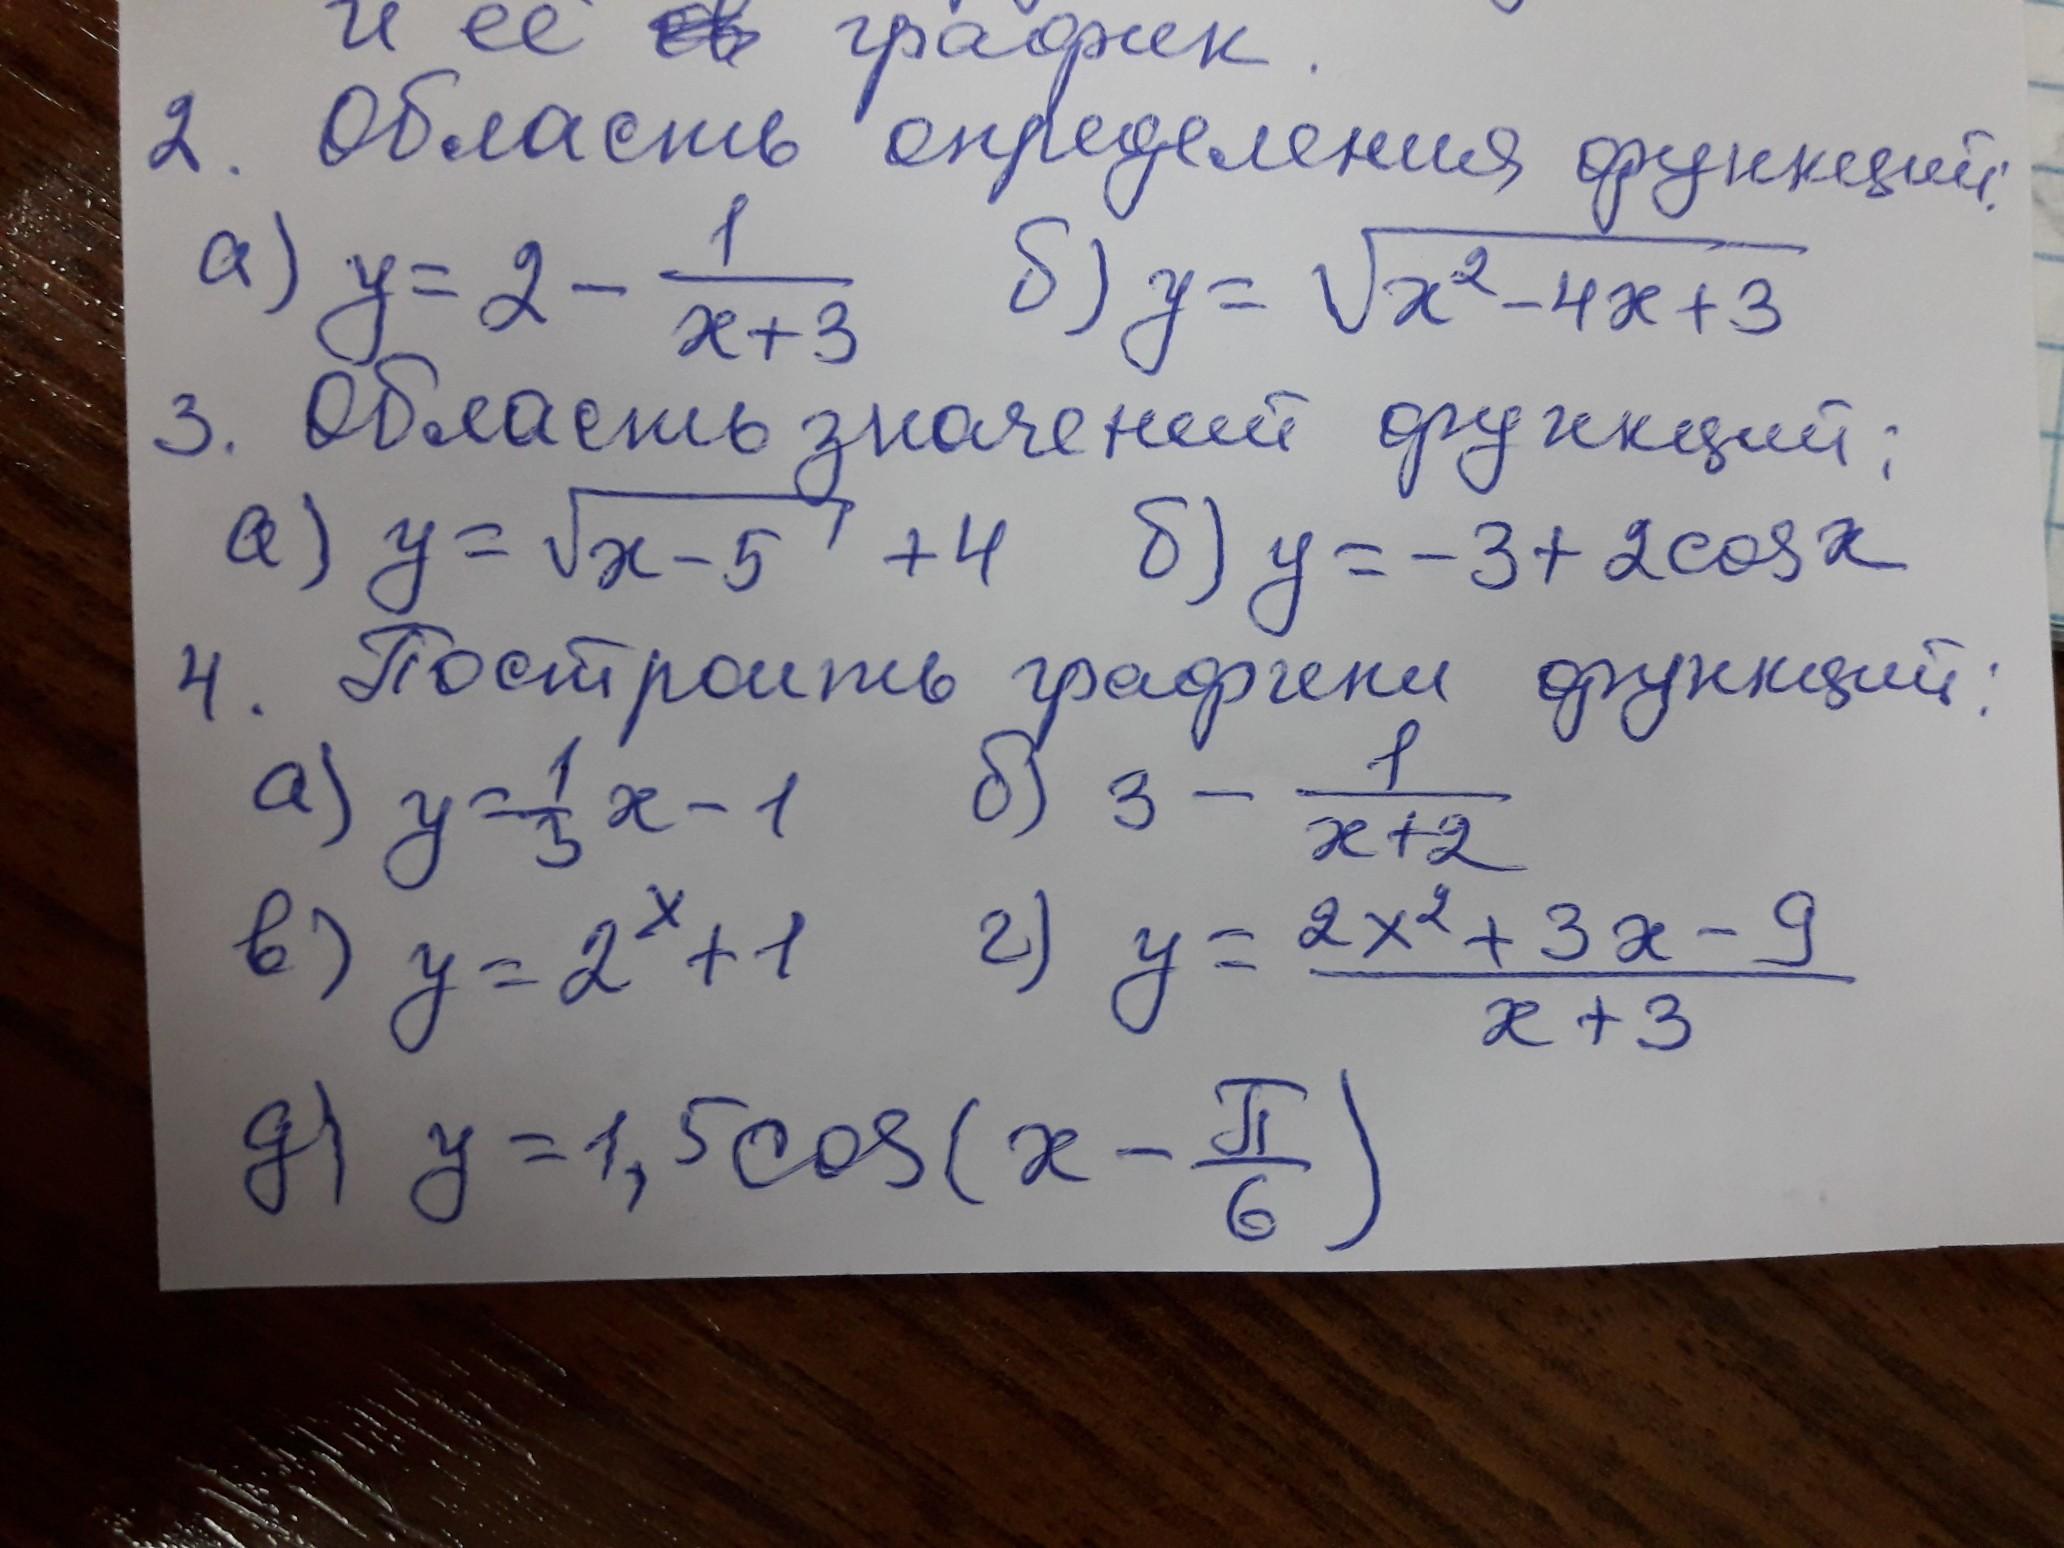 и её график.
2. Область определения функций:
а) y = 2 - 1/(x+3) б) y = √(x²-4x+3)
3. Область значений функций:
а) y = √(x-5) + 4 б) y = -3 + 2cosx
4. Построить графики функций:
а) y = 1/3 x - 1 б) 3 - 1/(x+2)
в) y = 2^x + 1 г) y = (2x² + 3x - 9)/(x + 3)
д) y = 1,5cos(x - π/6)